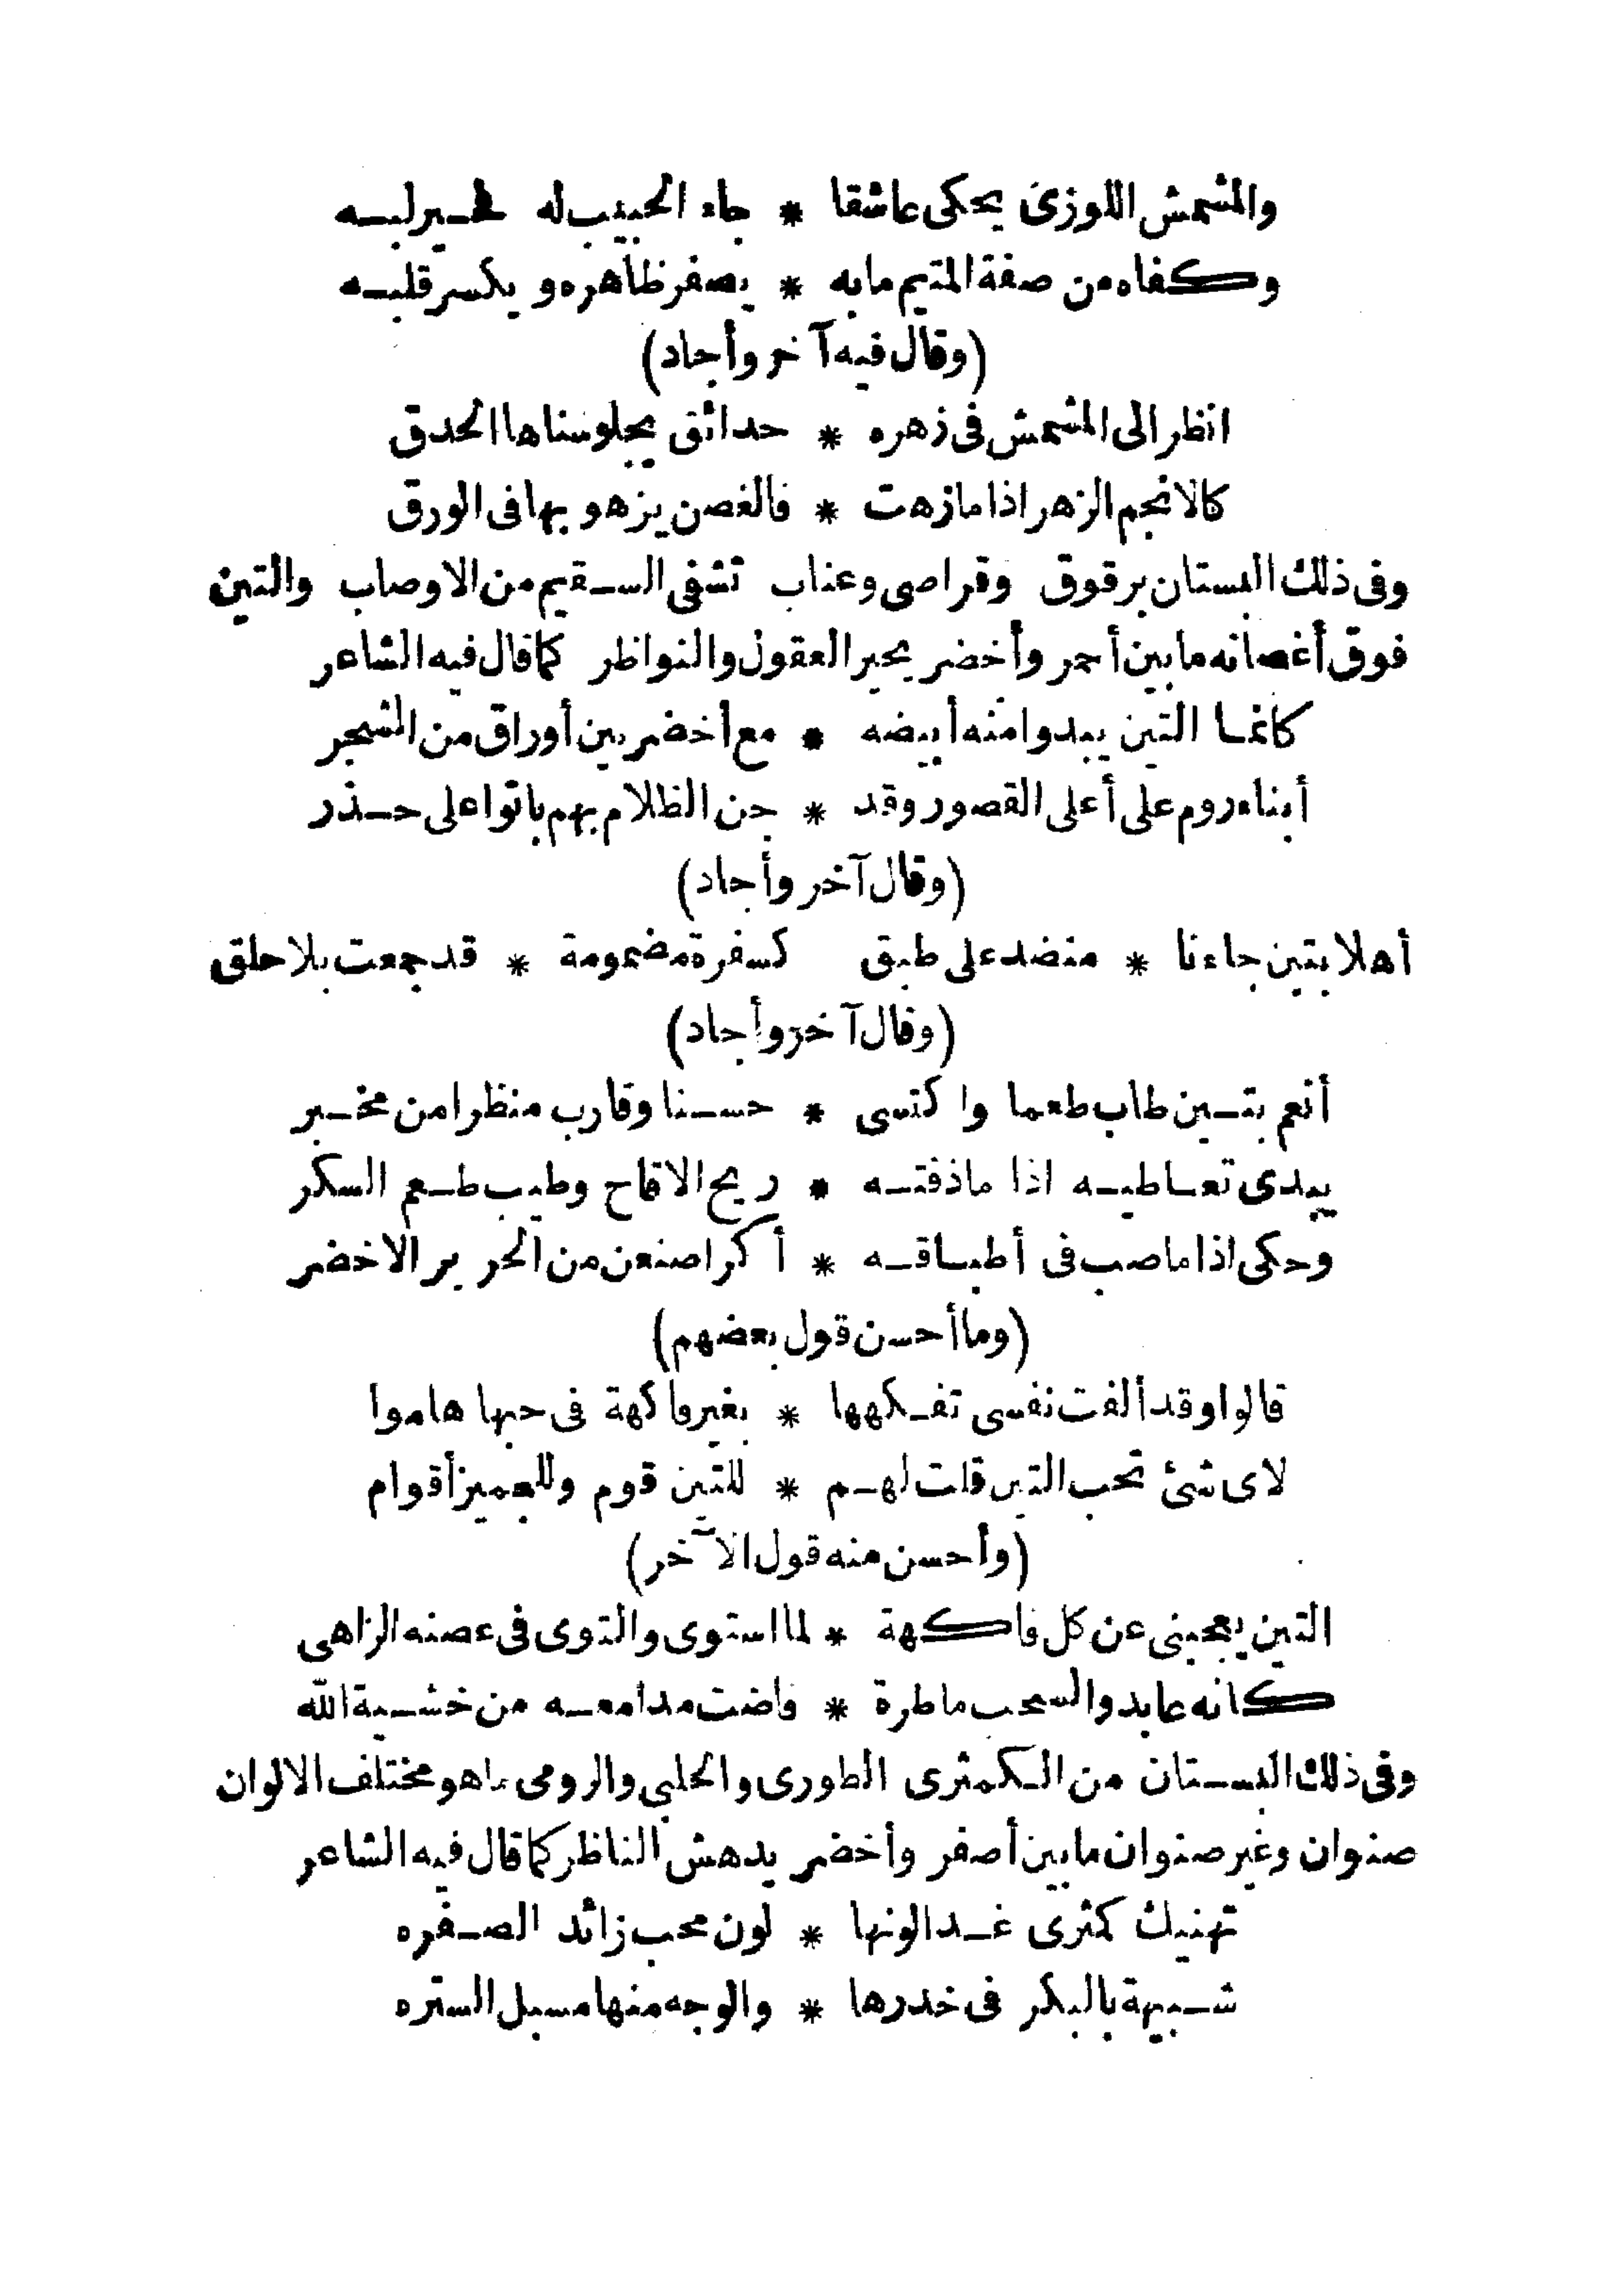 والمشمش اللوزى يحكى عاشقا * جاء الحبيب له فحير لبه
وكفاه من صفة المتيم مابه * يصفر ظاهره ويكسر قلبه
(وقال فيه آخر وأجاد)
انظر الى المشمش فى زهره * حدائق يجلو سناها الحدق
كالانجم الزهر اذا مازهت * فالغصن يزهو بها فى الورق
وفى ذلك البستان برقوق وقراصى وعناب تشفى السقيم من الاوصاب والتين
فوق أغصانه مابين أحمر وأخضر يحير العقول والنواظر كما قال فيه الشاعر
كانما التين يبدوا منه أبيضه * مع أخضر بين أوراق من الشجر
أبناء روم على أعلى القصور وقد * جن الظلام بهم باتوا على حذر
(وقال آخر وأجاد)
أهلا بتين جاءنا * منضد على طبق كسفرة مضمومة * قد جمعت بلا حلق
(وقال آخر وأجاد)
أنعم بتين طاب طعما واكتسى * حسنا وقارب منظرا من مخبر
يبدى تعاطيه اذا ماذقته * ريح الاقاح وطيب طعم السكر
وحكى اذا ماصب فى أطباقه * أكرا صنعن من الحرير الاخضر
(وما أحسن قول بعضهم)
قالوا وقد ألفت نفسى تفكهها * بغير فاكهة فى حبها هاموا
لاى شئ تحب التين قلت لهم * للتين قوم وللجميز أقوام
(وأحسن منه قول الآخر)
التين يعجبنى عن كل فاكهة * لما استوى والتوى فى غصنه الزاهى
كانه عابد والسحب ماطرة * فاضت مدامعه من خشية الله
وفى ذلك البستان من الكمثرى الطورى والحلبى والرومى ماهو مختلف الالوان
صنوان وغير صنوان مابين أصفر وأخضر يدهش الناظر كما قال فيه الشاعر
تهنيك كمثرى غدا لونها * لون محب زائد الصفره
شبيهة بالبكر فى خدرها * والوجه منها مسبل الستره